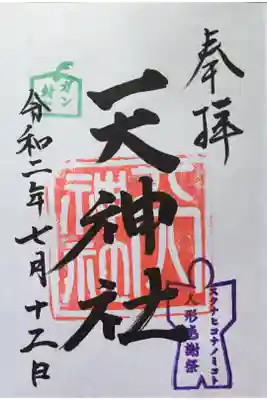 奉拝
天神社
スクナヒコナノミコト
人形感謝祭
ガン
封
令和二年七月十二日